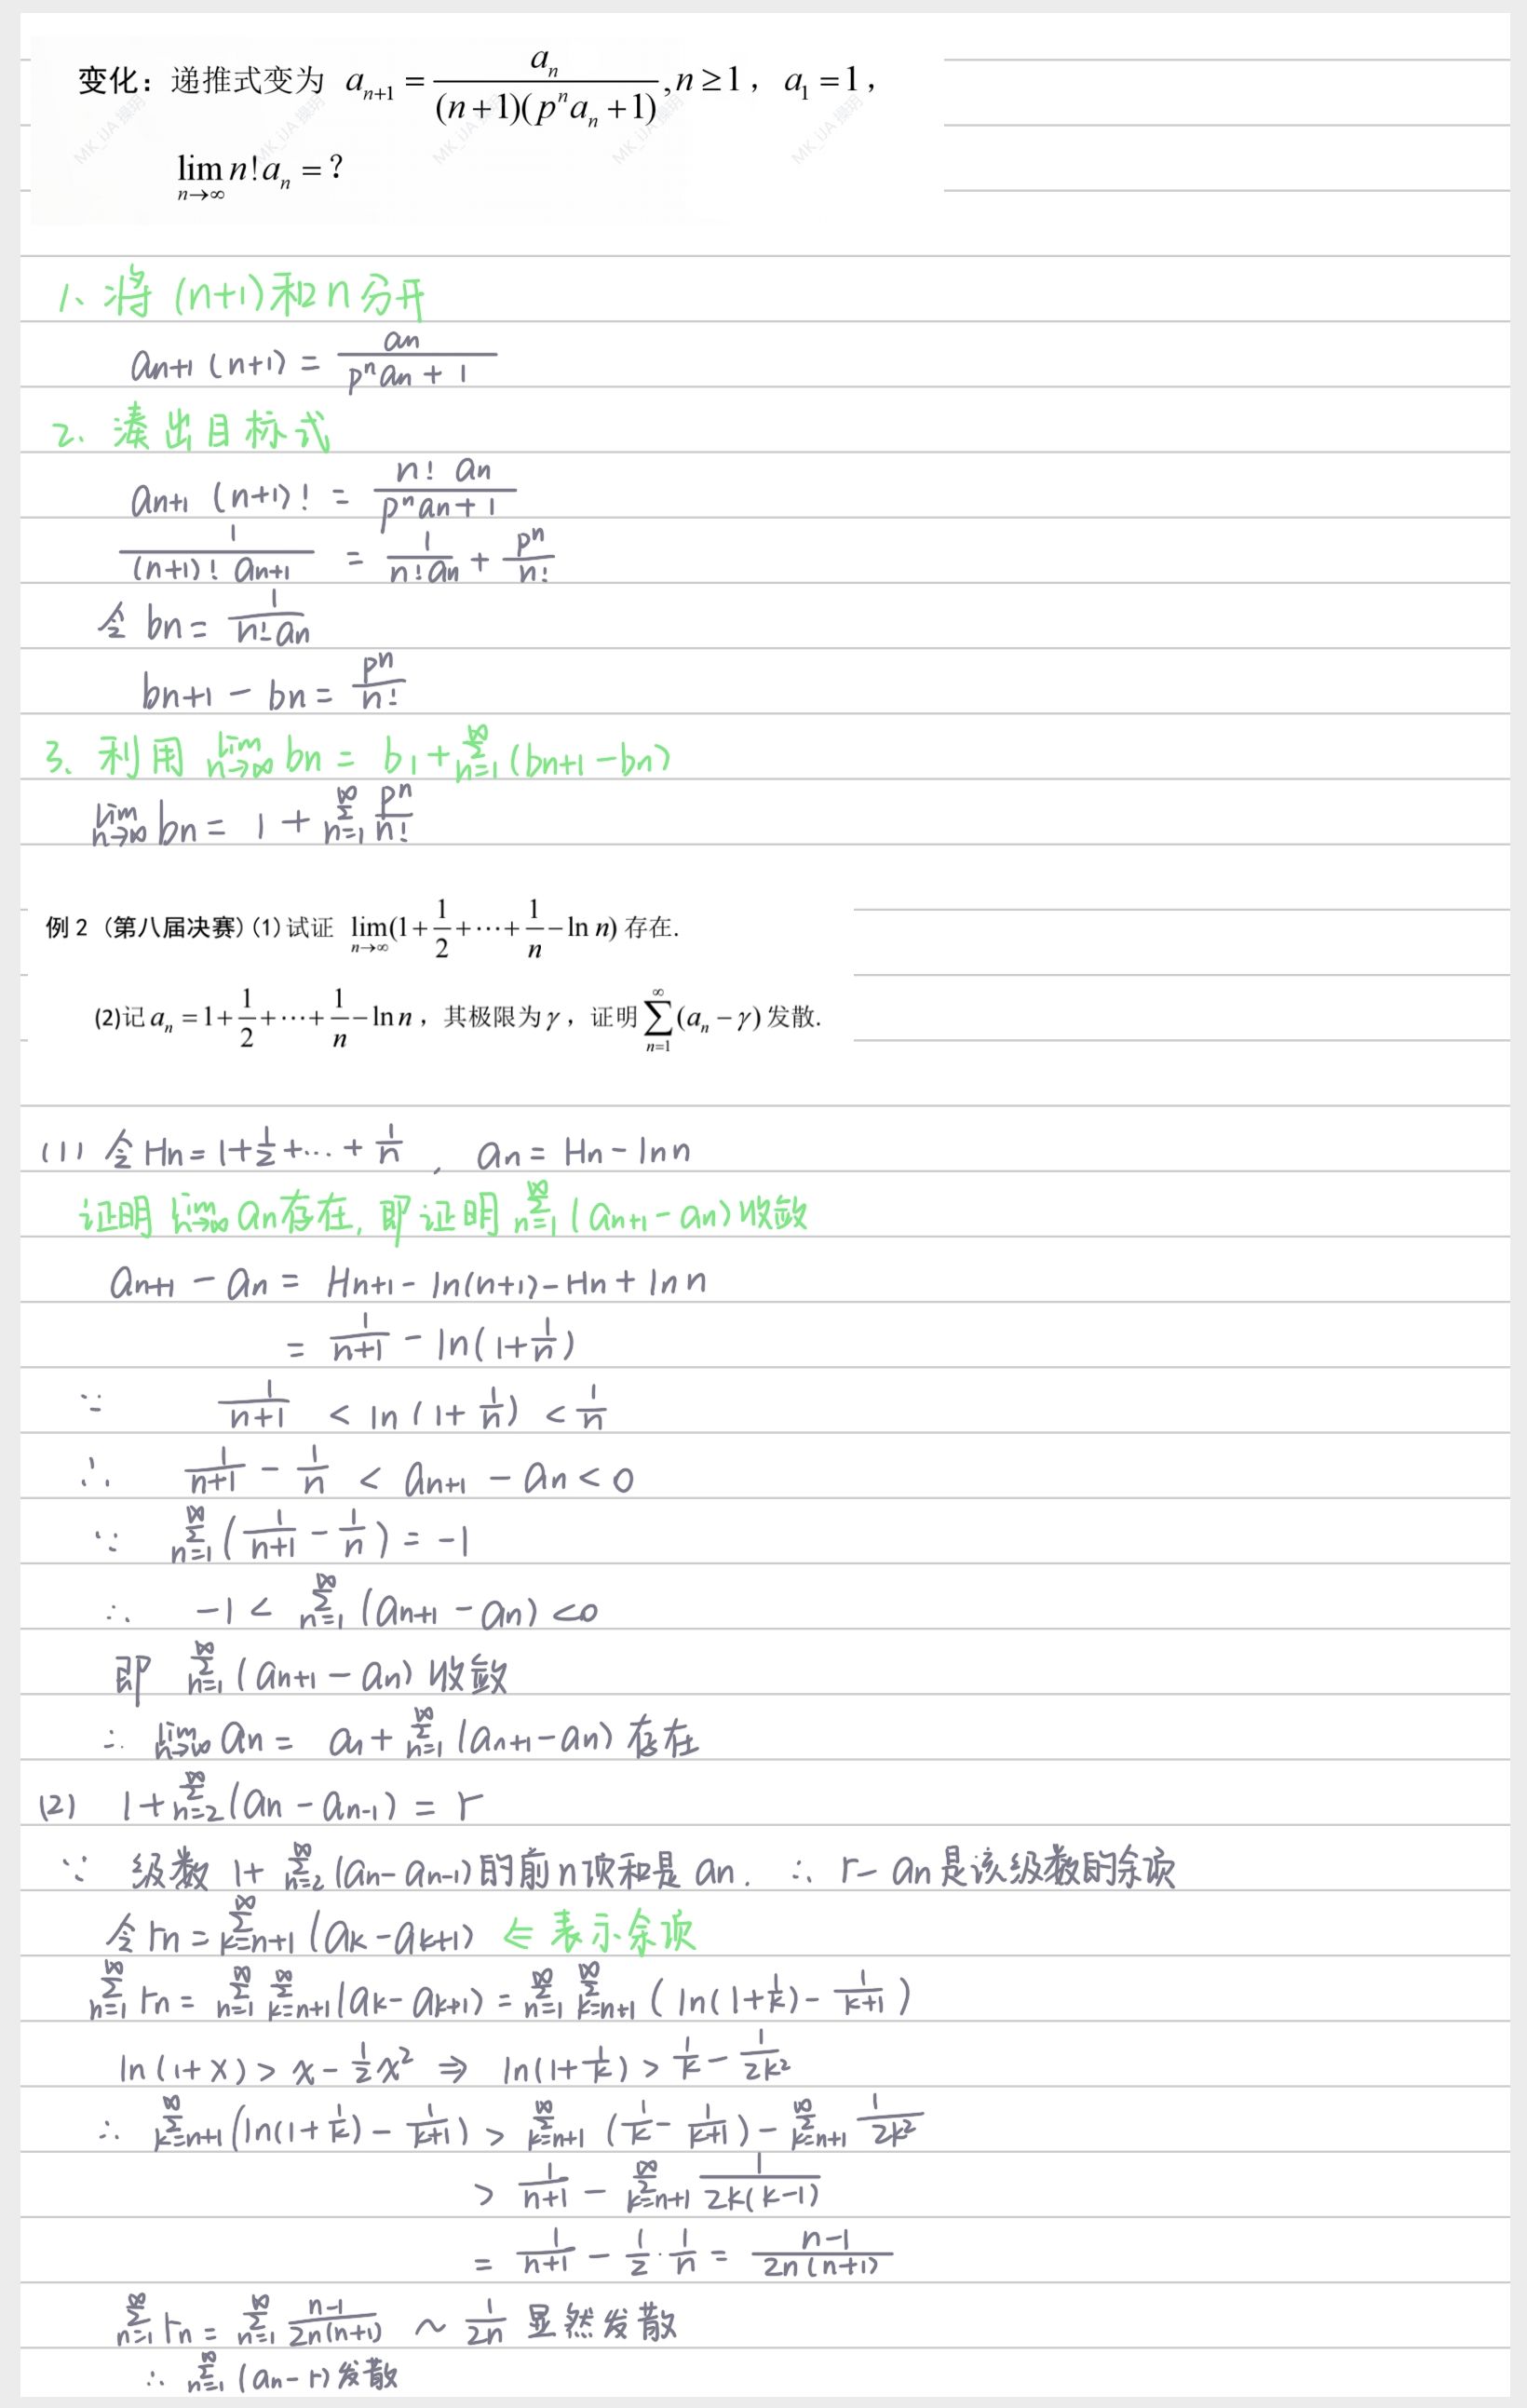 变化：递推式变为 a_{n+1} = \frac{a_n}{(n+1)(p^n a_n + 1)}, n ≥ 1， a_1 = 1，
\lim_{n→∞} n! a_n = ?
MK_IJA 撮玥 MK_IJA 撮玥 MK_IJA 撮玥 MK_IJA 撮玥 MK_IJA 撮玥
1、将 (n+1)和 n 分开
a_{n+1} (n+1) = \frac{a_n}{p^n a_n + 1}
2. 凑出目标式
a_{n+1} (n+1)! = \frac{n! a_n}{p^n a_n + 1}
\frac{1}{(n+1)! a_{n+1}} = \frac{1}{n! a_n} + \frac{p^n}{n!}
令 b_n = \frac{1}{n! a_n}
b_{n+1} - b_n = \frac{p^n}{n!}
3、利用 \lim_{n→∞} b_n = b_1 + \sum_{n=1}^{∞} (b_{n+1} - b_n)
\lim_{n→∞} b_n = 1 + \sum_{n=1}^{∞} \frac{p^n}{n!}
例 2（第八届决赛）(1) 试证 \lim_{n→∞} (1 + \frac{1}{2} + ⋯ + \frac{1}{n} - \ln n) 存在.
(2)记 a_n = 1 + \frac{1}{2} + ⋯ + \frac{1}{n} - \ln n，其极限为 γ，证明 \sum_{n=1}^{∞} (a_n - γ) 发散.
(1) 令 H_n = 1 + \frac{1}{2} + ... + \frac{1}{n} , a_n = H_n - ln n
证明 \lim_{n→∞} a_n 存在, 即证明 \sum_{n=1}^{∞} (a_{n+1} - a_n) 收敛
a_{n+1} - a_n = H_{n+1} - ln(n+1) - H_n + ln n
= \frac{1}{n+1} - ln(1 + \frac{1}{n})
∵ \frac{1}{n+1} < ln(1 + \frac{1}{n}) < \frac{1}{n}
∴ \frac{1}{n+1} - \frac{1}{n} < a_{n+1} - a_n < 0
∵ \sum_{n=1}^{∞} (\frac{1}{n+1} - \frac{1}{n}) = -1
∴ -1 < \sum_{n=1}^{∞} (a_{n+1} - a_n) < 0
即 \sum_{n=1}^{∞} (a_{n+1} - a_n) 收敛
∴ \lim_{n→∞} a_n = a_1 + \sum_{n=1}^{∞} (a_{n+1} - a_n) 存在
(2) 1 + \sum_{n=2}^{∞} (a_n - a_{n-1}) = r
∵ 级数 1 + \sum_{n=2}^{∞} (a_n - a_{n-1}) 的前 n 项和是 a_n. ∴ r - a_n 是该级数的余项
令 r_n = \sum_{k=n+1}^{∞} (a_k - a_{k+1}) ⇐ 表示余项
\sum_{n=1}^{∞} r_n = \sum_{n=1}^{∞} \sum_{k=n+1}^{∞} (a_k - a_{k+1}) = \sum_{n=1}^{∞} \sum_{k=n+1}^{∞} (ln(1 + \frac{1}{k}) - \frac{1}{k+1})
ln(1+x) > x - \frac{1}{2}x^2 ⇒ ln(1 + \frac{1}{k}) > \frac{1}{k} - \frac{1}{2k^2}
∴ \sum_{k=n+1}^{∞} (ln(1 + \frac{1}{k}) - \frac{1}{k+1}) > \sum_{k=n+1}^{∞} (\frac{1}{k} - \frac{1}{k+1}) - \sum_{k=n+1}^{∞} \frac{1}{2k^2}
> \frac{1}{n+1} - \sum_{k=n+1}^{∞} \frac{1}{2k(k-1)}
= \frac{1}{n+1} - \frac{1}{2} · \frac{1}{n} = \frac{n-1}{2n(n+1)}
\sum_{n=1}^{∞} r_n = \sum_{n=1}^{∞} \frac{n-1}{2n(n+1)} ~ \frac{1}{2n} 显然发散
∴ \sum_{n=1}^{∞} (a_n - r) 发散